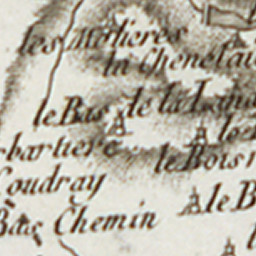 les Molieres
la Chenelai
le Bas de la Lana
le
bartiere
le Bois
Coudray
le B
Bas Chemin